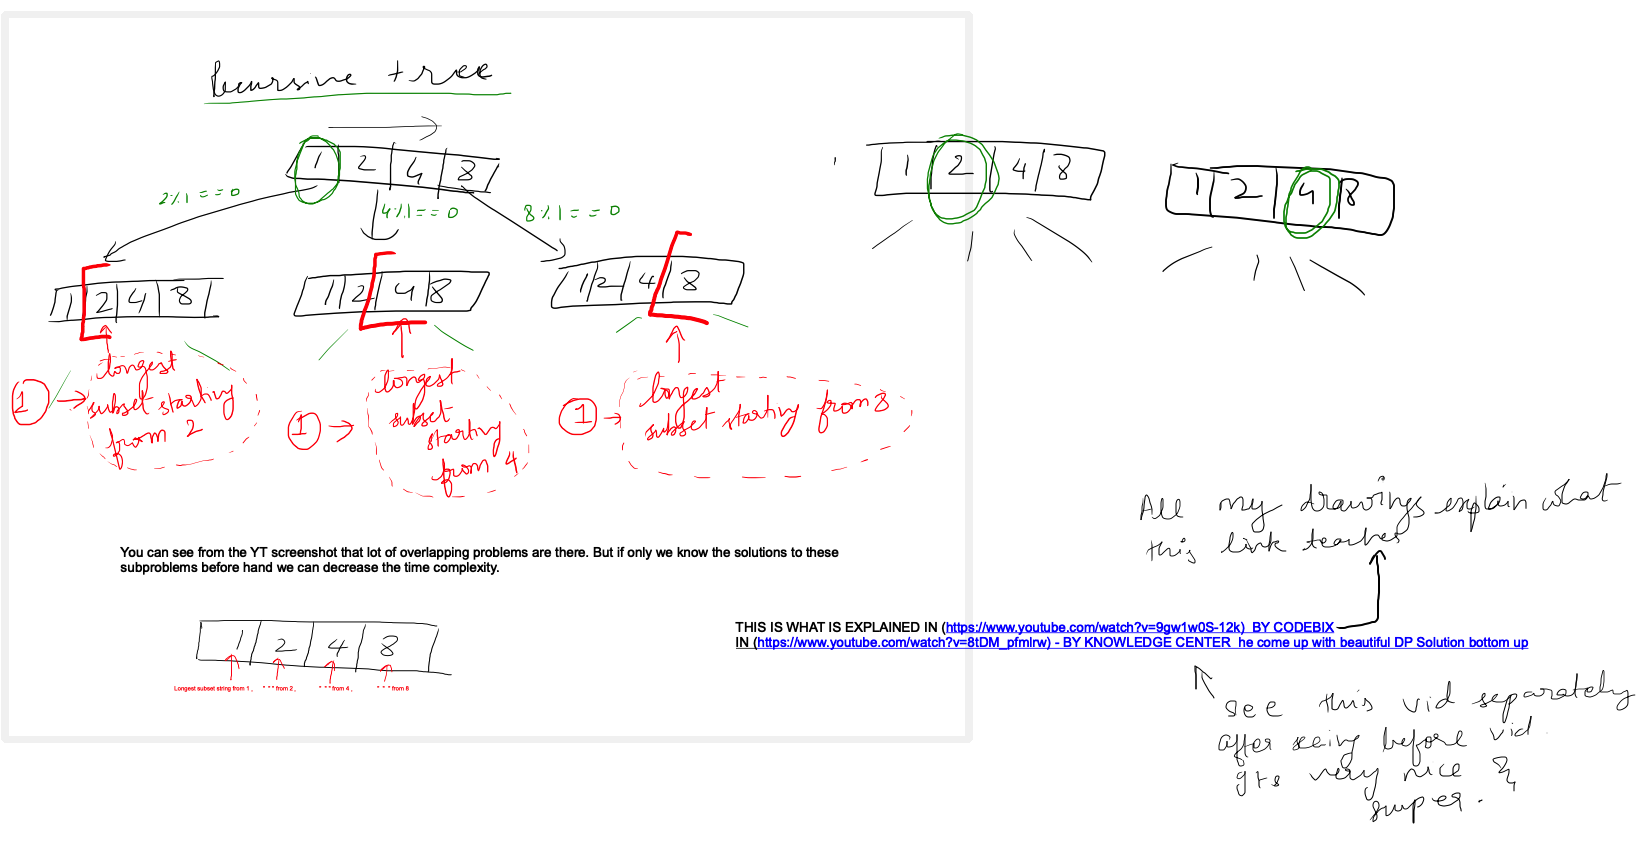 Recursive tree
1 2 4 8
2%1 == 0
4%1 == 0
8%1 == 0
1 2 4 8
1 2 4 8
1 2 4 8
1 → longest
subset starting
from 2
1 → longest
subset
starting
from 4
1 → longest
subset starting from 8
1 2 4 8
1 2 4 8
You can see from the YT screenshot that lot of overlapping problems are there. But if only we know the solutions to these
subproblems before hand we can decrease the time complexity.
1 2 4 8
Longest subset string from 1 , " " " from 2 , " " " from 4 , " " " from 8
All my drawings explain what
this link teaches
THIS IS WHAT IS EXPLAINED IN (https://www.youtube.com/watch?v=9gw1w0S-12k) BY CODEBIX
IN (https://www.youtube.com/watch?v=8tDM_pfmlrw) - BY KNOWLEDGE CENTER he come up with beautiful DP Solution bottom up
see this vid separately
after seeing before vid.
Its very nice &
super.